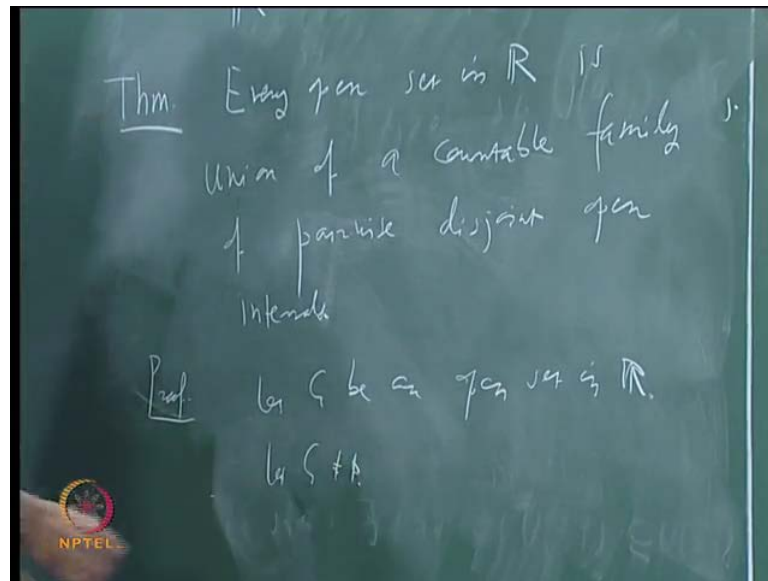 Thm. Every open set in R is
union of a countable family
of pairwise disjoint open
intervals.
Proof. Let G be an open set in R.
Let G ≠
NPTEL